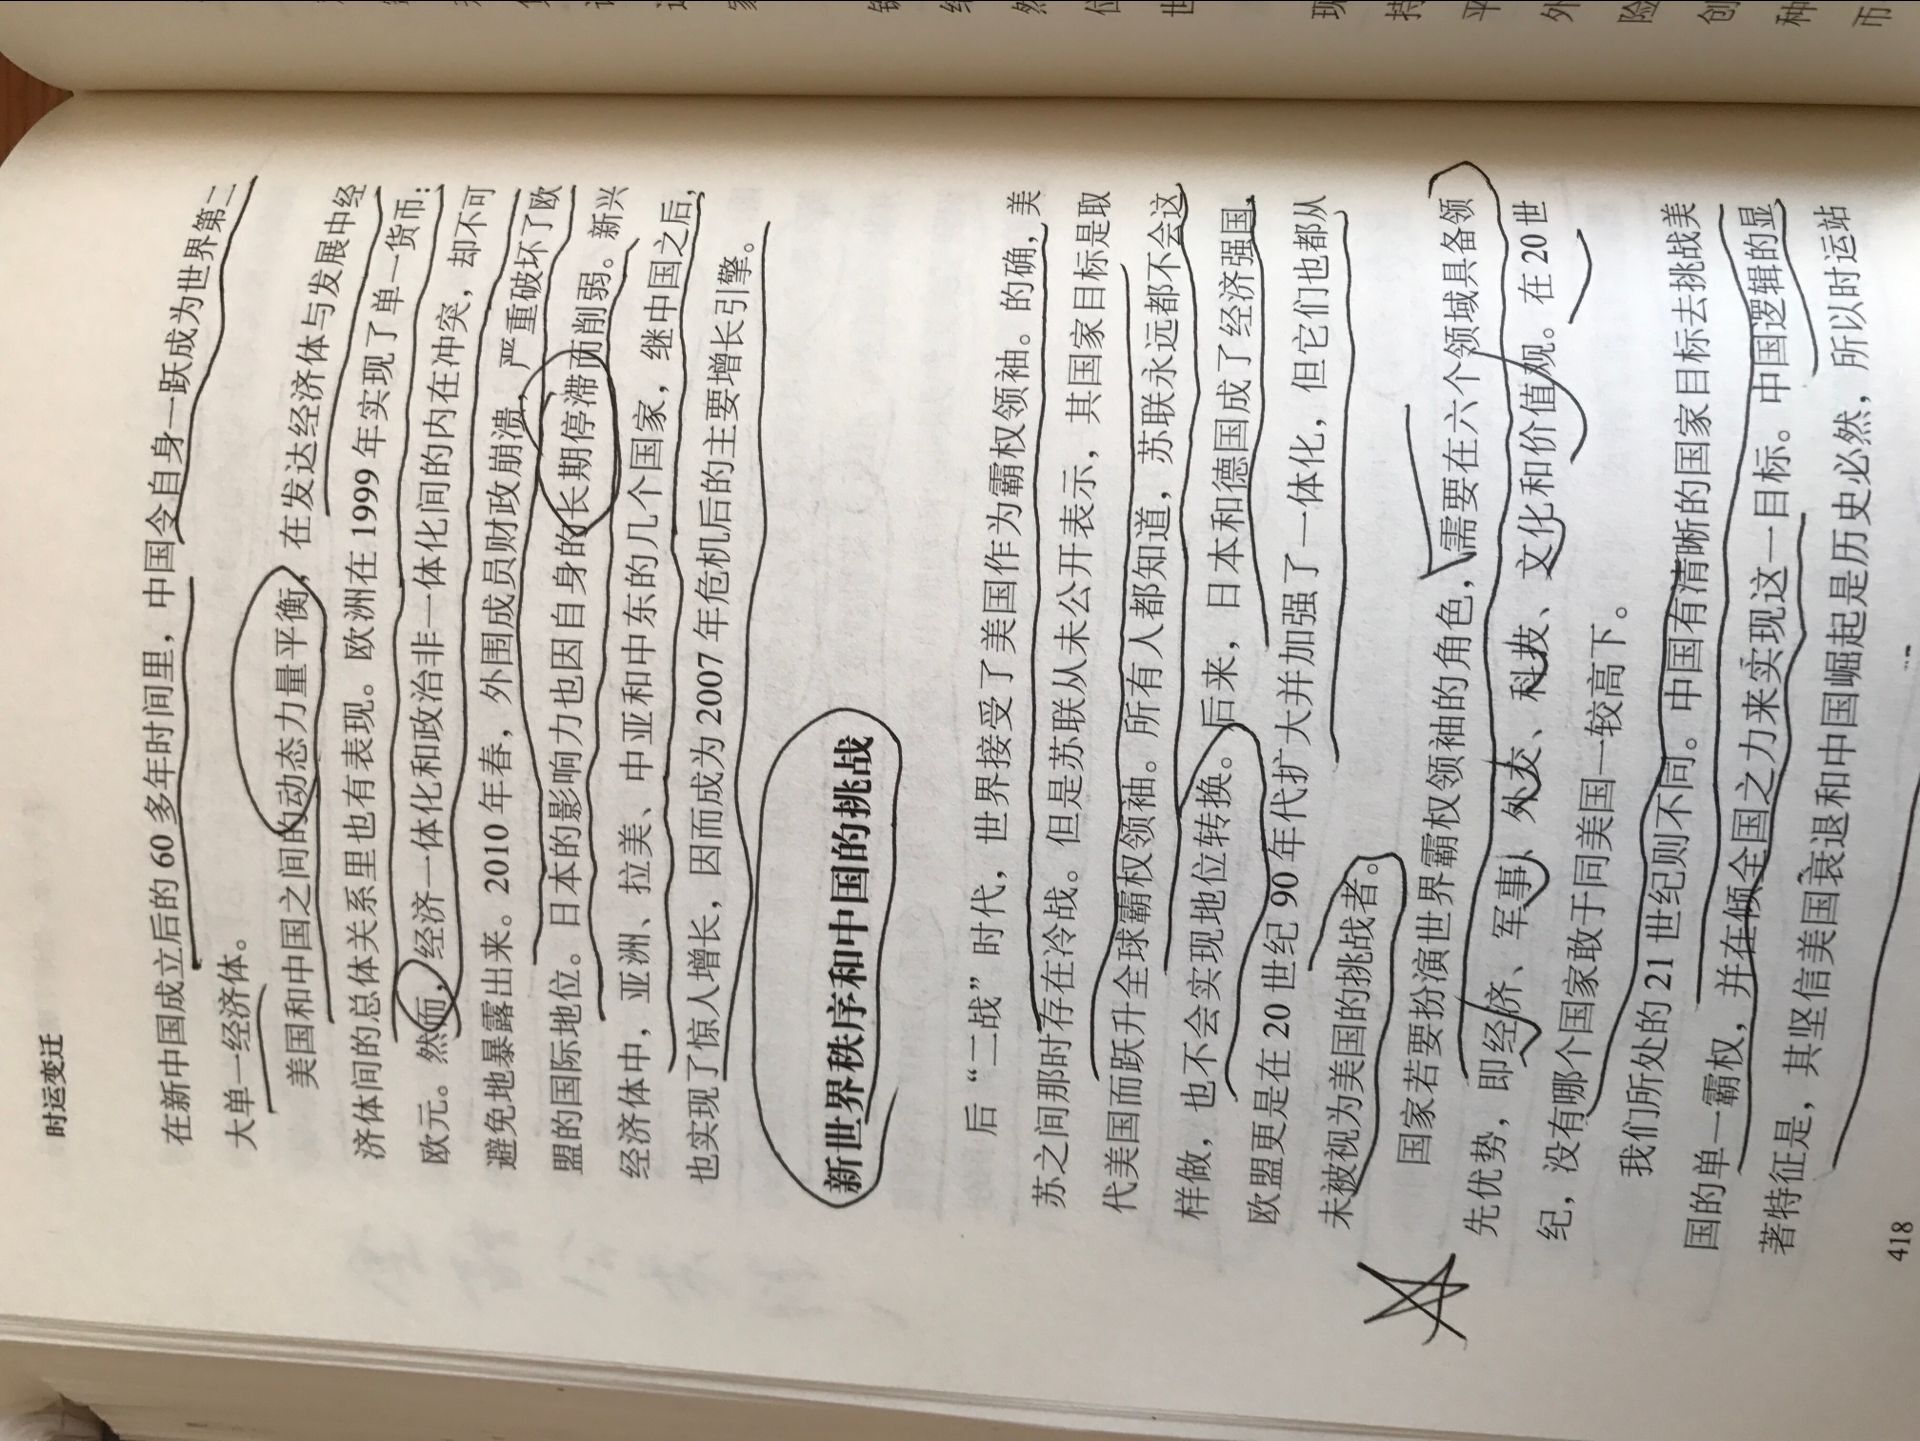 时运变迁
在新中国成立后的 60 多年时间里，中国令自身一跃成为世界第二
大单一经济体。
美国和中国之间的动态力量平衡，在发达经济体与发展中经
济体间的总体关系里也有表现。欧洲在 1999 年实现了单一货币：
欧元。然而，经济一体化和政治非一体化间的内在冲突，却不可
避免地暴露出来。2010 年春，外围成员财政崩溃，严重破坏了欧
盟的国际地位。日本的影响力也因自身的长期停滞而削弱。新兴
经济体中，亚洲、拉美、中亚和中东的几个国家，继中国之后，
也实现了惊人增长，因而成为 2007 年危机后的主要增长引擎。
新世界秩序和中国的挑战
后“二战”时代，世界接受了美国作为霸权领袖。的确，美
苏之间那时存在冷战。但是苏联从未公开表示，其国家目标是取
代美国而跃升全球霸权领袖。所有人都知道，苏联永远都不会这
样做，也不会实现地位转换。后来，日本和德国成了经济强国，
欧盟更是在 20 世纪 90 年代扩大并加强了一体化，但它们也都从
未被视为美国的挑战者。
国家若要扮演世界霸权领袖的角色，需要在六个领域具备领
先优势，即经济、军事、外交、科技、文化和价值观。在 20 世
纪，没有哪个国家敢于同美国一较高下。
我们所处的 21 世纪则不同。中国有清晰的国家目标去挑战美
国的单一霸权，并在倾全国之力来实现这一目标。中国逻辑的显
著特征是，其坚信美国衰退和中国崛起是历史必然，所以时运站
418